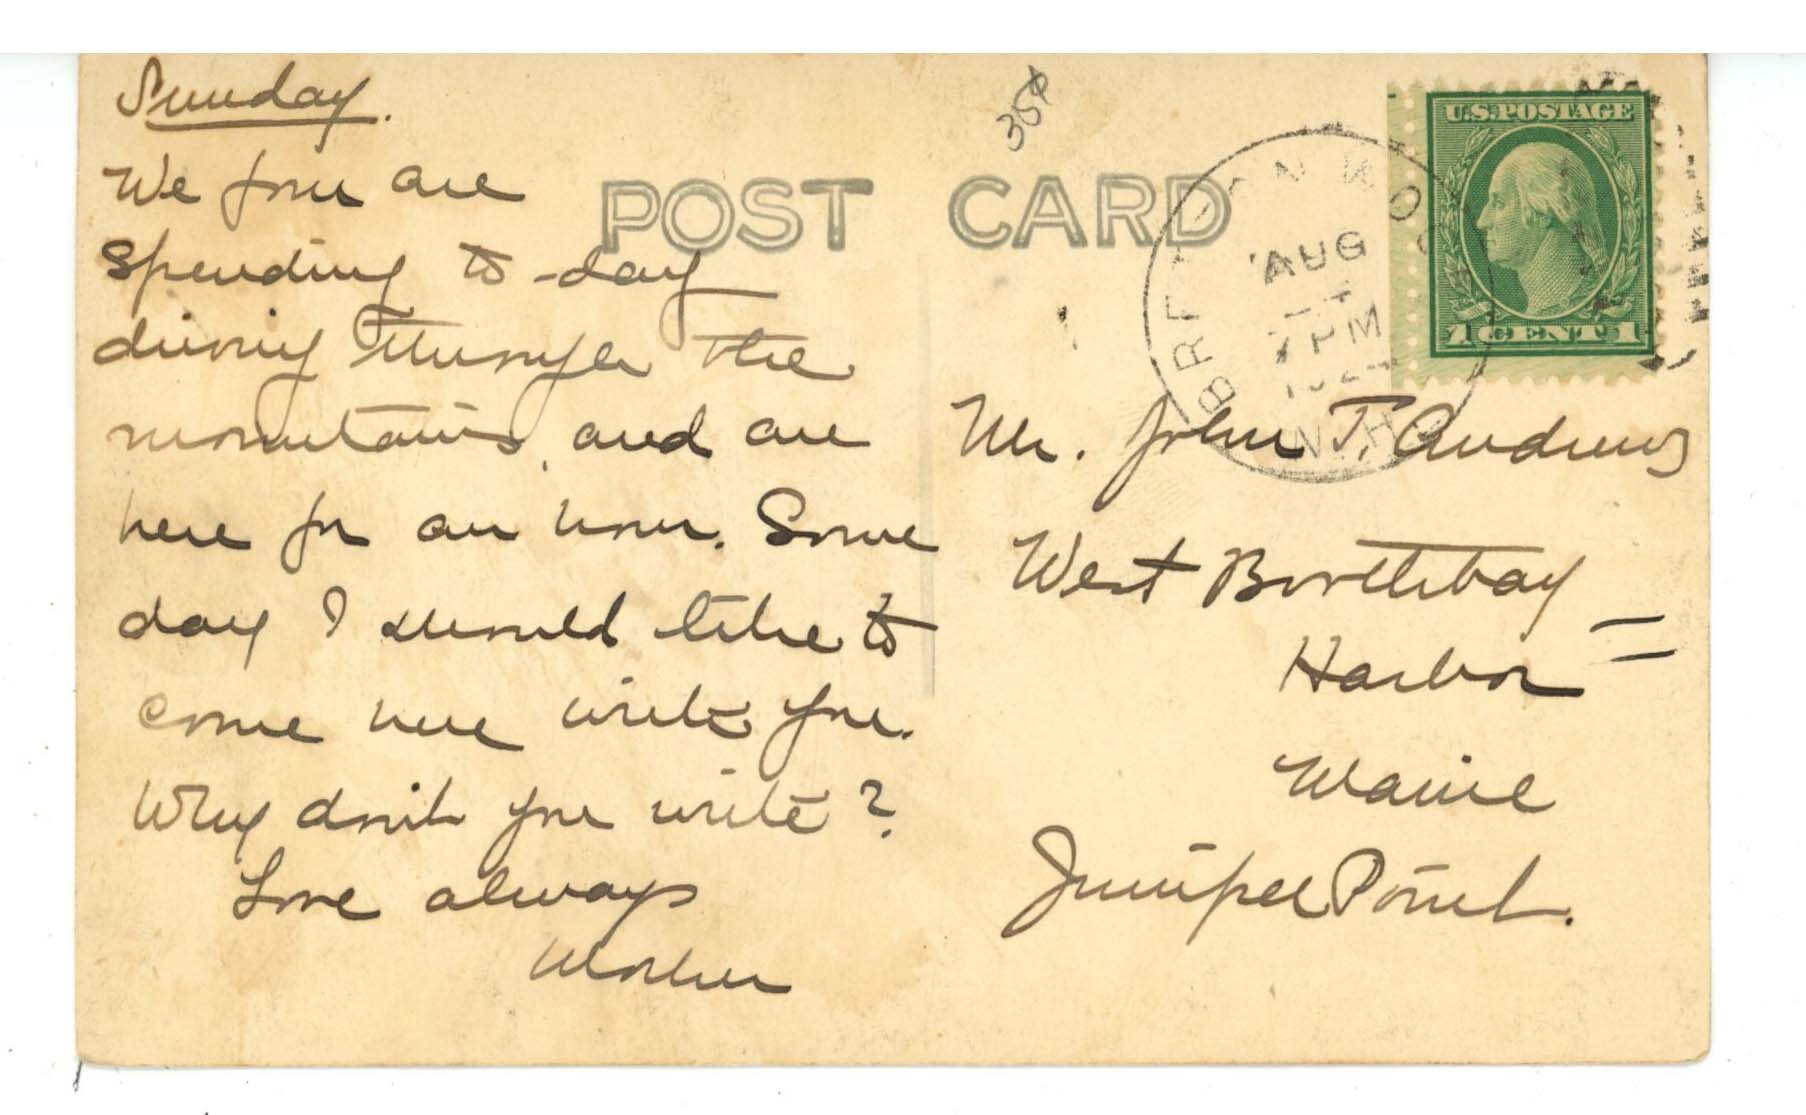 Sunday.
We four are
spending to-day
driving through the
mountains, and are
here for an hour. Some
day I should like to
come here with you.
Why don't you write?
Love always
Mother
35¢
POST CARD
BRETTON WOODS
AUG
7 PM
N.H.
U.S. POSTAGE
1 CENT 1
Mr. John T. Andrews
West Boothbay
Harbor =
Maine
Juniper Point.